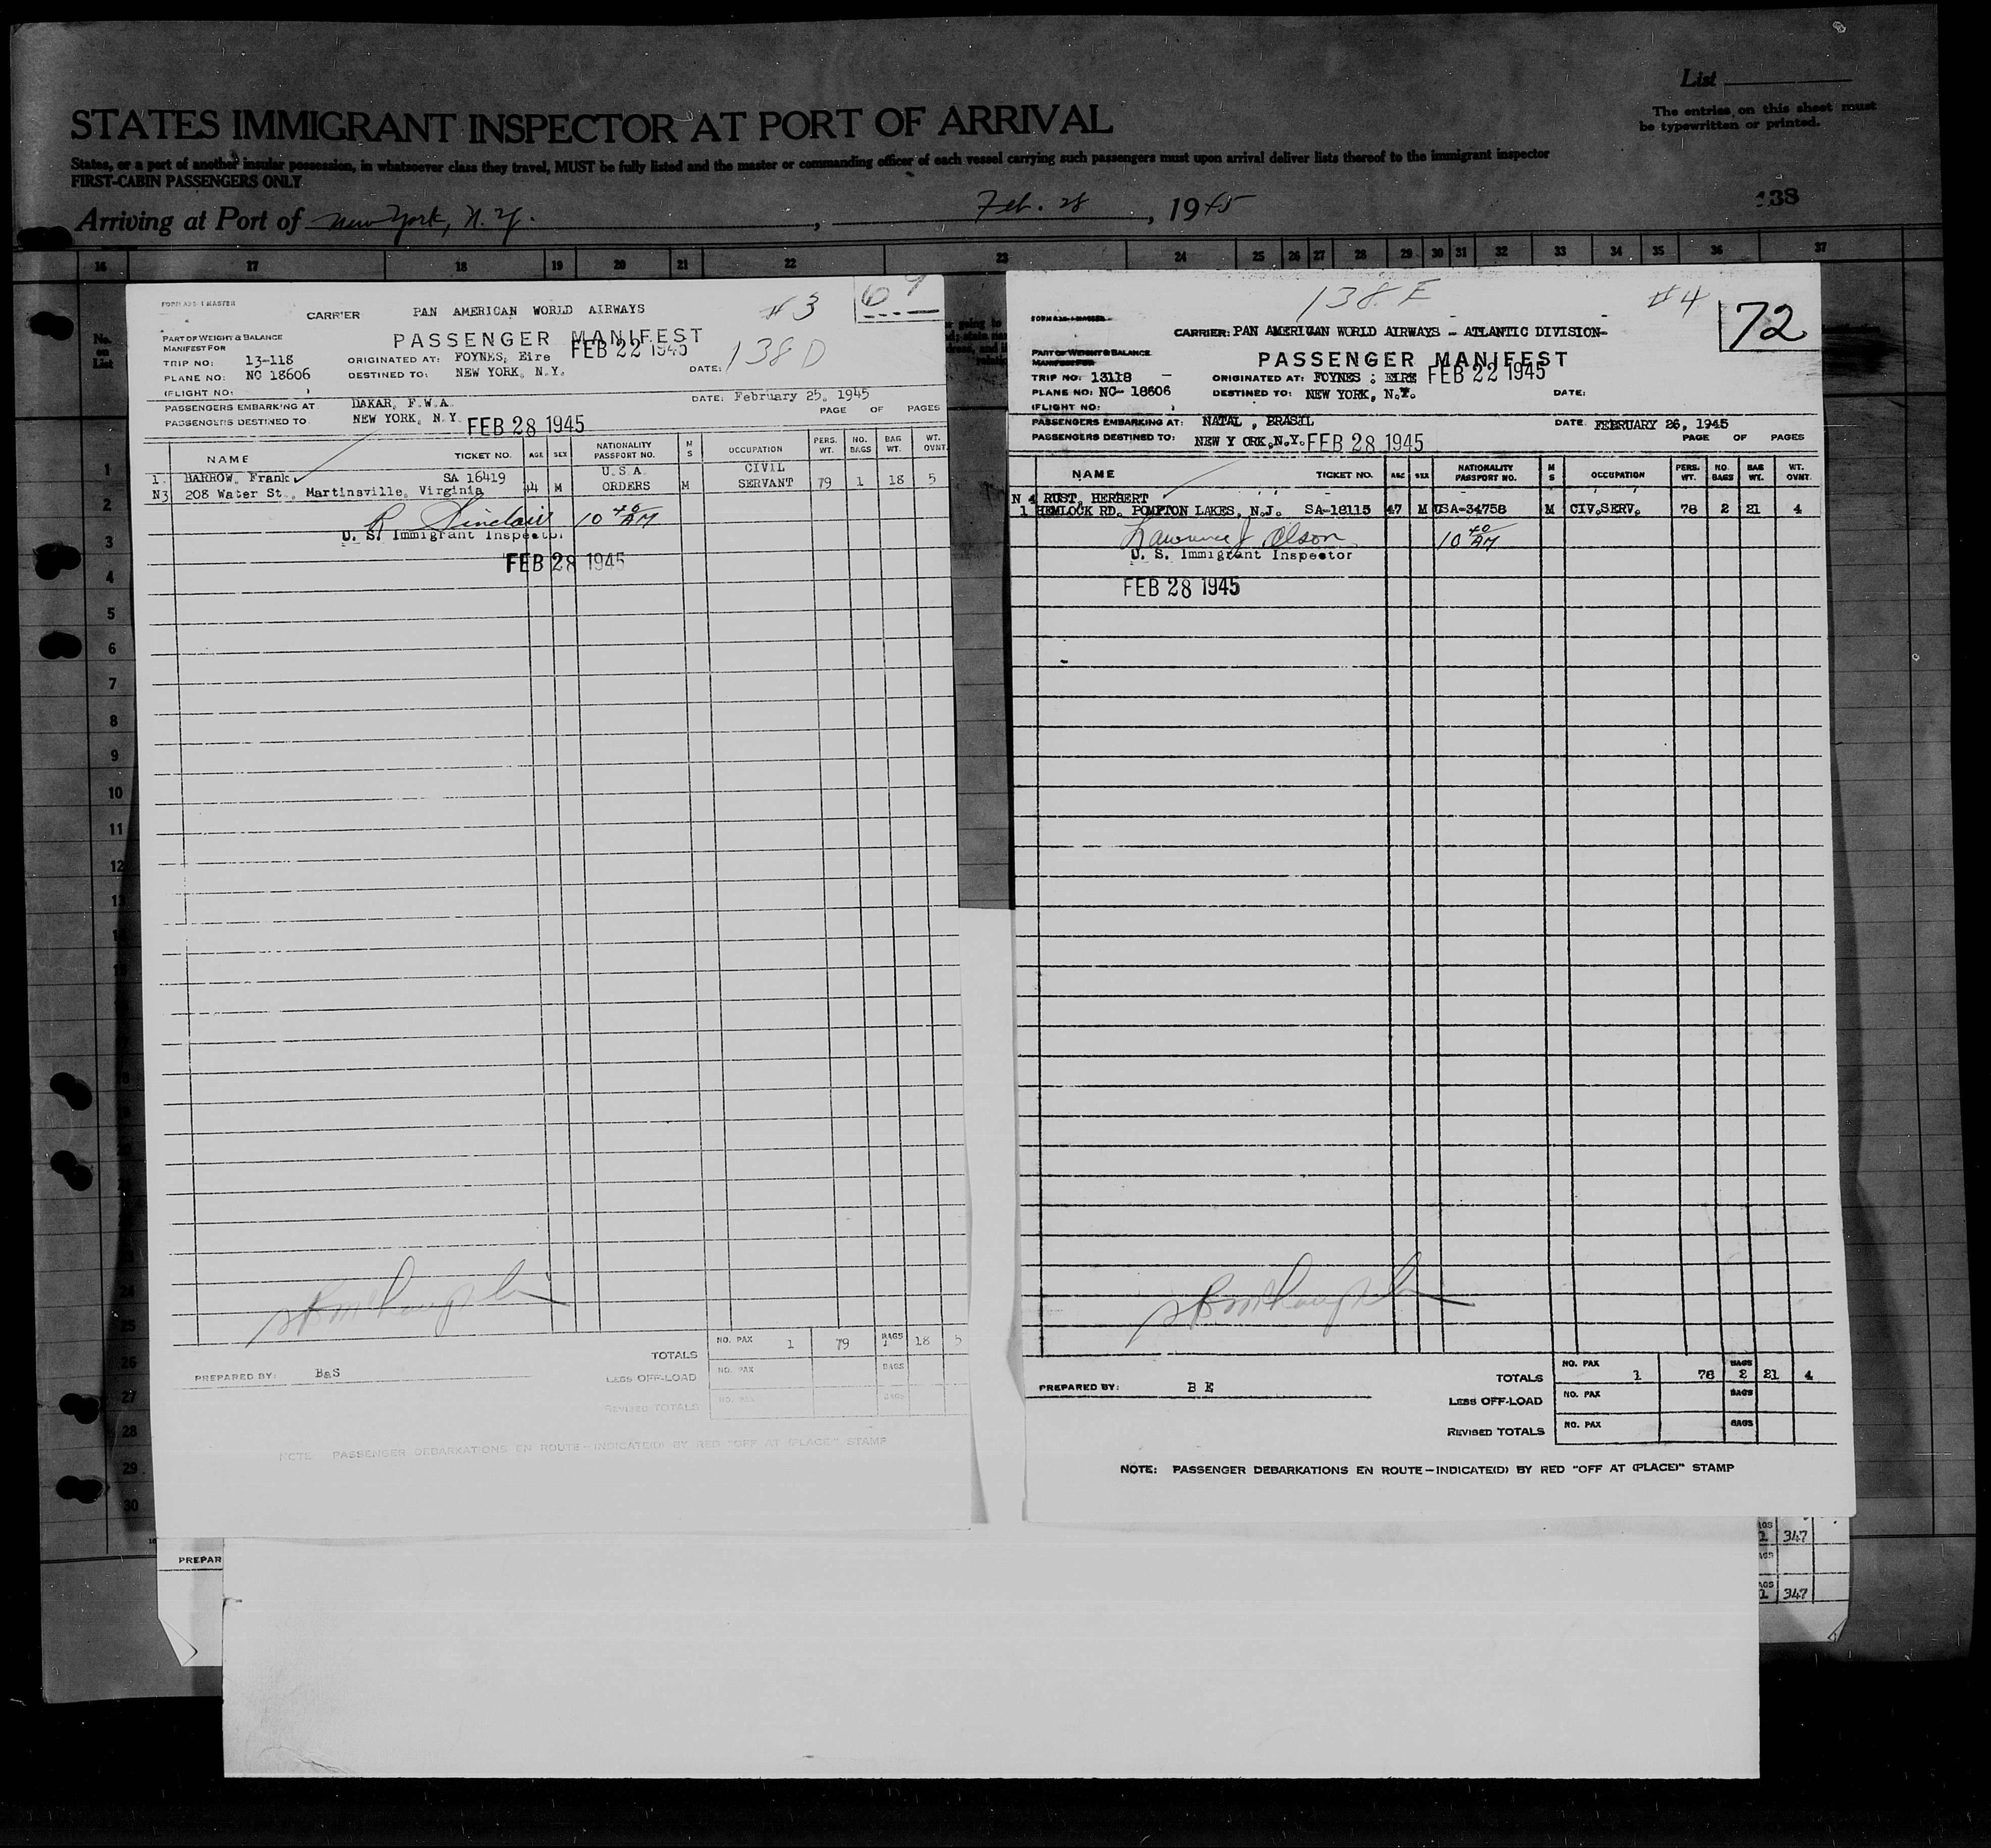 List
The entries on this sheet must
be typewritten or printed.
STATES IMMIGRANT INSPECTOR AT PORT OF ARRIVAL
States, or a port of another insular possession, in whatsoever class they travel, MUST be fully listed and the master or commanding officer of each vessel carrying such passengers must upon arrival deliver lists thereof to the immigrant inspector
FIRST-CABIN PASSENGERS ONLY
138
Arriving at Port of New York, N.Y. , Feb. 28 , 1945
16 17 18 19 20 21 22 23 24 25 26 27 28 29 30 31 32 33 34 35 36 37
No. on List
1
2
3
4
5
6
7
8
9
10
11
12
24
25
26
27
28
29
30
#3
CARRIER PAN AMERICAN WORLD AIRWAYS
PASSENGER MANIFEST
PART OF WEIGHT & BALANCE
MANIFEST FOR
FEB 22 1945
138 D
TRIP NO: 13-118 ORIGINATED AT: FOYNES, Eire
PLANE NO: NC 18606 DESTINED TO: NEW YORK, N.Y. DATE:
(FLIGHT NO: )
PASSENGERS EMBARKING AT DAKAR, F.W.A. DATE: February 25, 1945
PASSENGERS DESTINED TO NEW YORK, N.Y. FEB 28 1945 PAGE OF PAGES
NAME TICKET NO. AGE SEX NATIONALITY PASSPORT NO. M S OCCUPATION PERS. WT. NO. BAGS BAG WT. WT. OVNT.
1. BARROW, Frank SA 16419 U.S.A. CIVIL
N3 208 Water St., Martinsville, Virginia 44 M ORDERS M SERVANT 79 1 18 5
R. Sinclair 10 40 AM
U. S. Immigrant Inspector
FEB 28 1945
TOTALS NO. PAX 1 79 BAGS 1 18 5
LESS OFF-LOAD NO. PAX BAGS
REVISED TOTALS NO. PAX BAGS
PREPARED BY: B&S
NOTE PASSENGER DEBARKATIONS EN ROUTE—INDICATE(D) BY RED "OFF AT (PLACE)" STAMP
PREPAR
138 E
#4
72
CARRIER: PAN AMERICAN WORLD AIRWAYS - ATLANTIC DIVISION-
PART OF WEIGHT & BALANCE
MANIFEST FOR
PASSENGER MANIFEST
TRIP NO: 13118 ORIGINATED AT: FOYNES ; EIRE FEB 22 1945
PLANE NO: NC- 18606 DESTINED TO: NEW YORK, N.Y. DATE:
(FLIGHT NO: )
PASSENGERS EMBARKING AT: NATAL , BRASIL DATE FEBRUARY 26, 1945
PASSENGERS DESTINED TO: NEW Y ORK,N.Y. FEB 28 1945 PAGE OF PAGES
NAME TICKET NO. AGE SEX NATIONALITY PASSPORT NO. M S OCCUPATION PERS. WT. NO. BAGS BAG WT. WT. OVNT.
N 4 RUST, HERBERT
1 HEMLOCK RD. POMPTON LAKES, N.J. SA-18115 47 M USA-34758 M CIV.SERV. 78 2 21 4
Lawrence J Olson 10 40 AM
U. S. Immigrant Inspector
FEB 28 1945
TOTALS NO. PAX 1 78 BAGS 2 21 4
PREPARED BY: B E
LESS OFF-LOAD NO. PAX BAGS
REVISED TOTALS NO. PAX BAGS
NOTE: PASSENGER DEBARKATIONS EN ROUTE—INDICATE(D) BY RED "OFF AT (PLACE)" STAMP
347
347